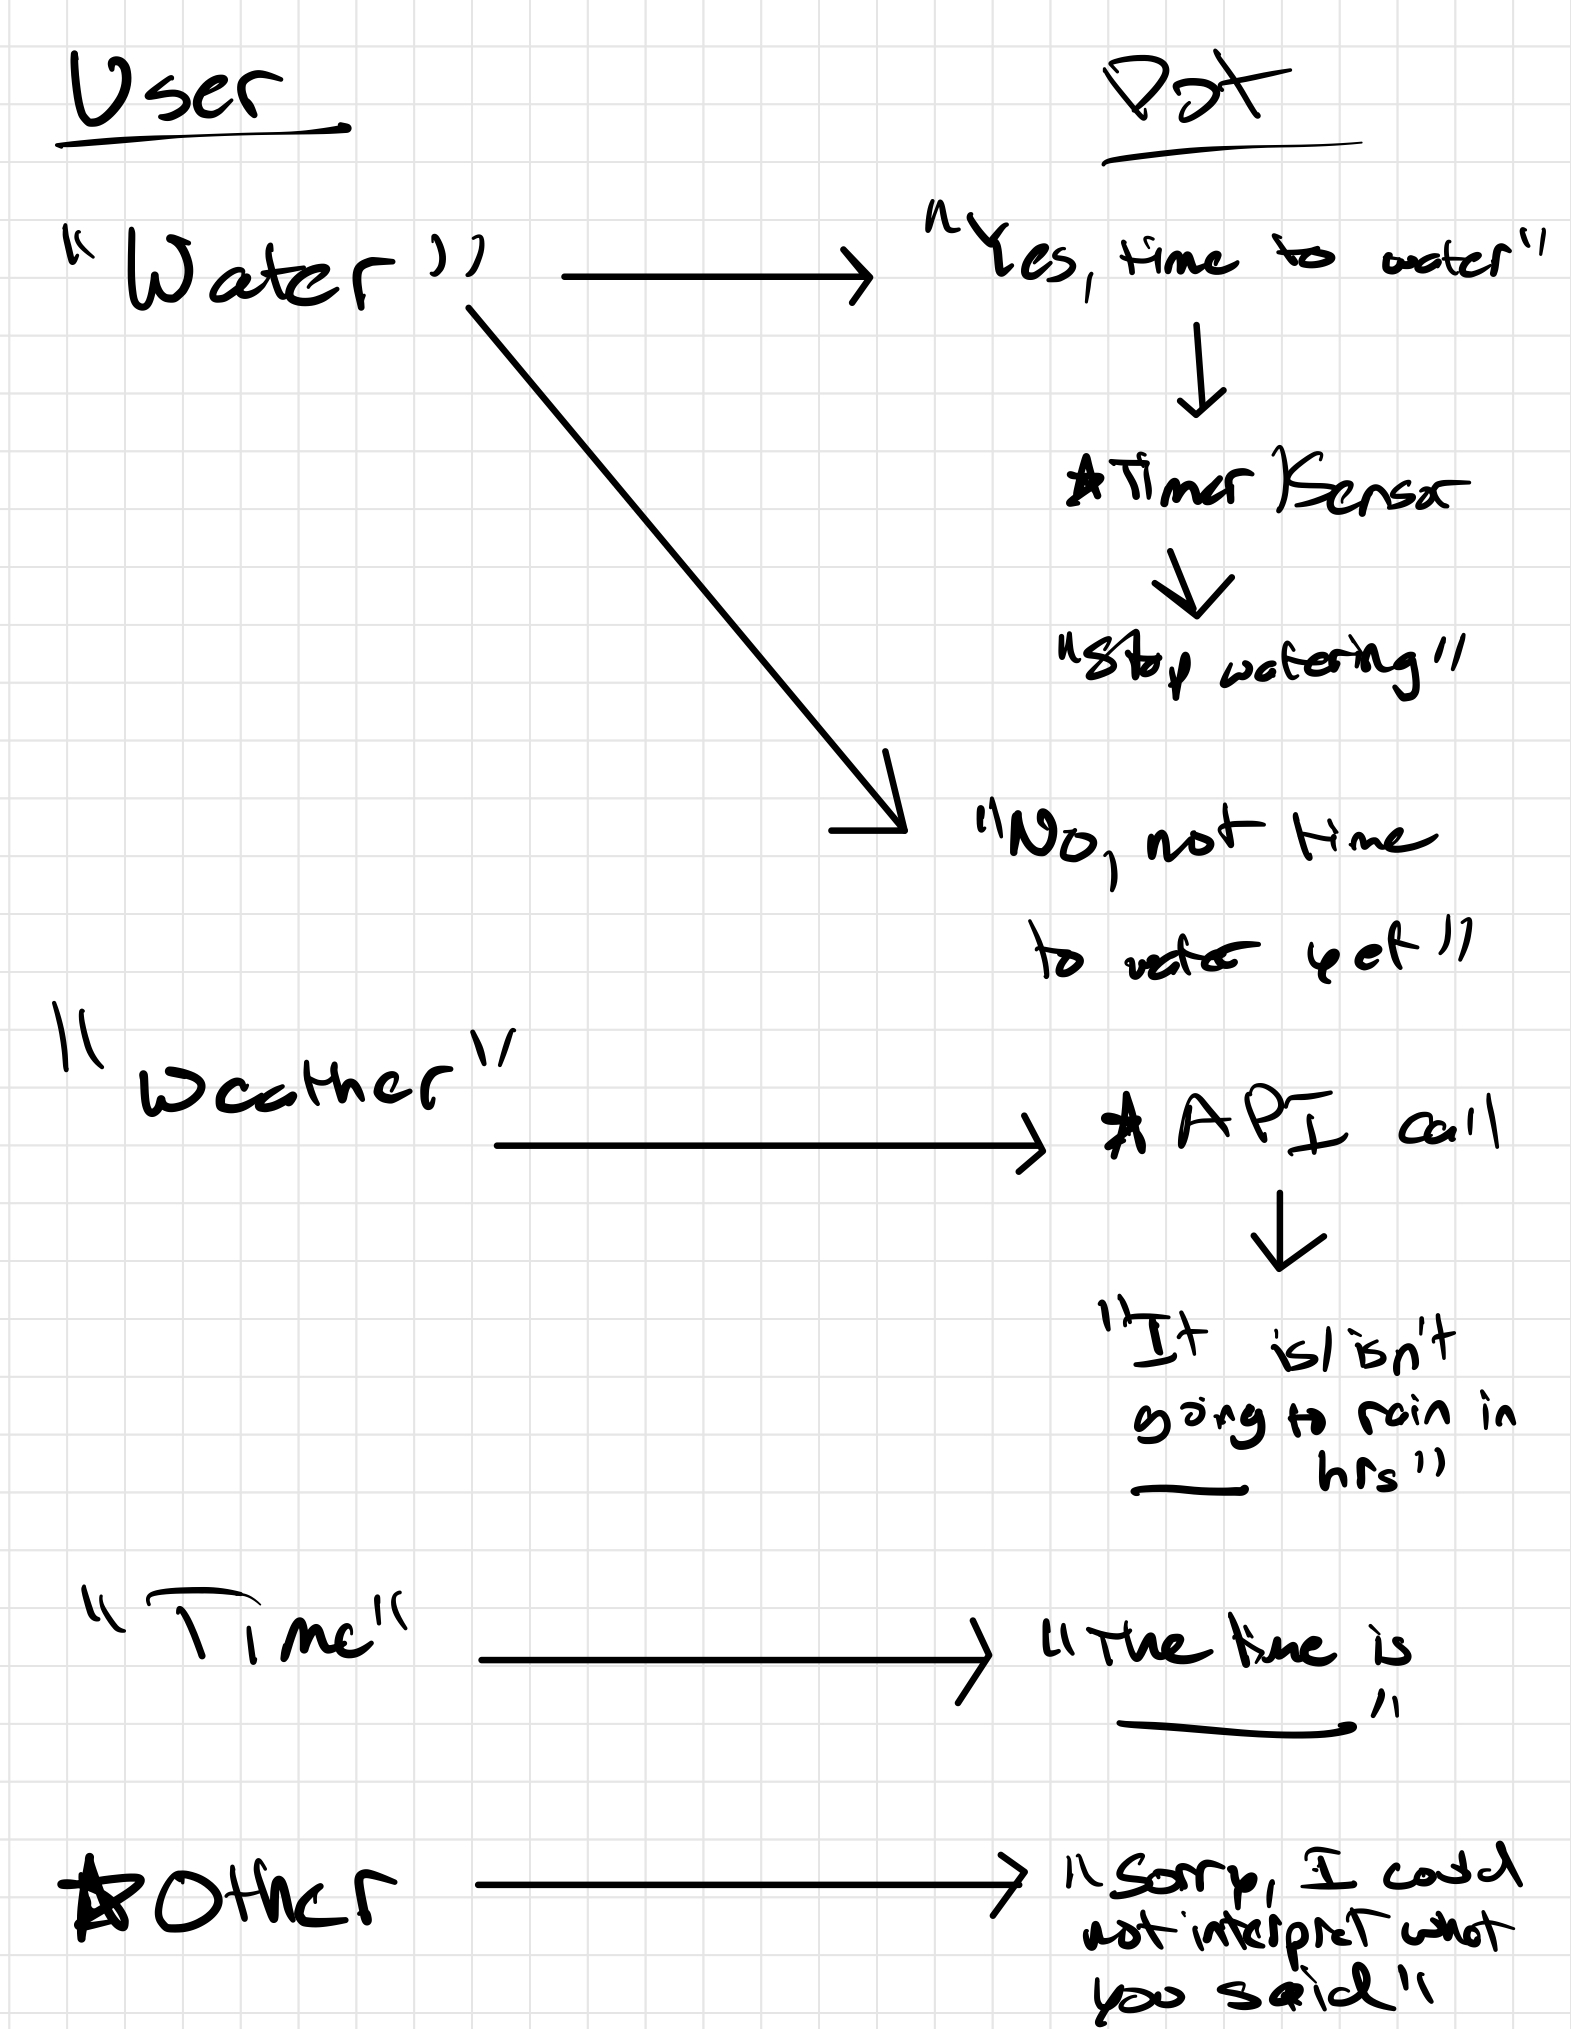 User
Dot
"Water"
"Yes, time to water"
★Timer/Sensor
"Stop watering"
"No, not time
to water yet"
"Weather"
★API call
"It is/isn't
going to rain in
____ hrs"
"Time"
"The time is
____"
★Other
"Sorry, I could
not interpret what
you said"